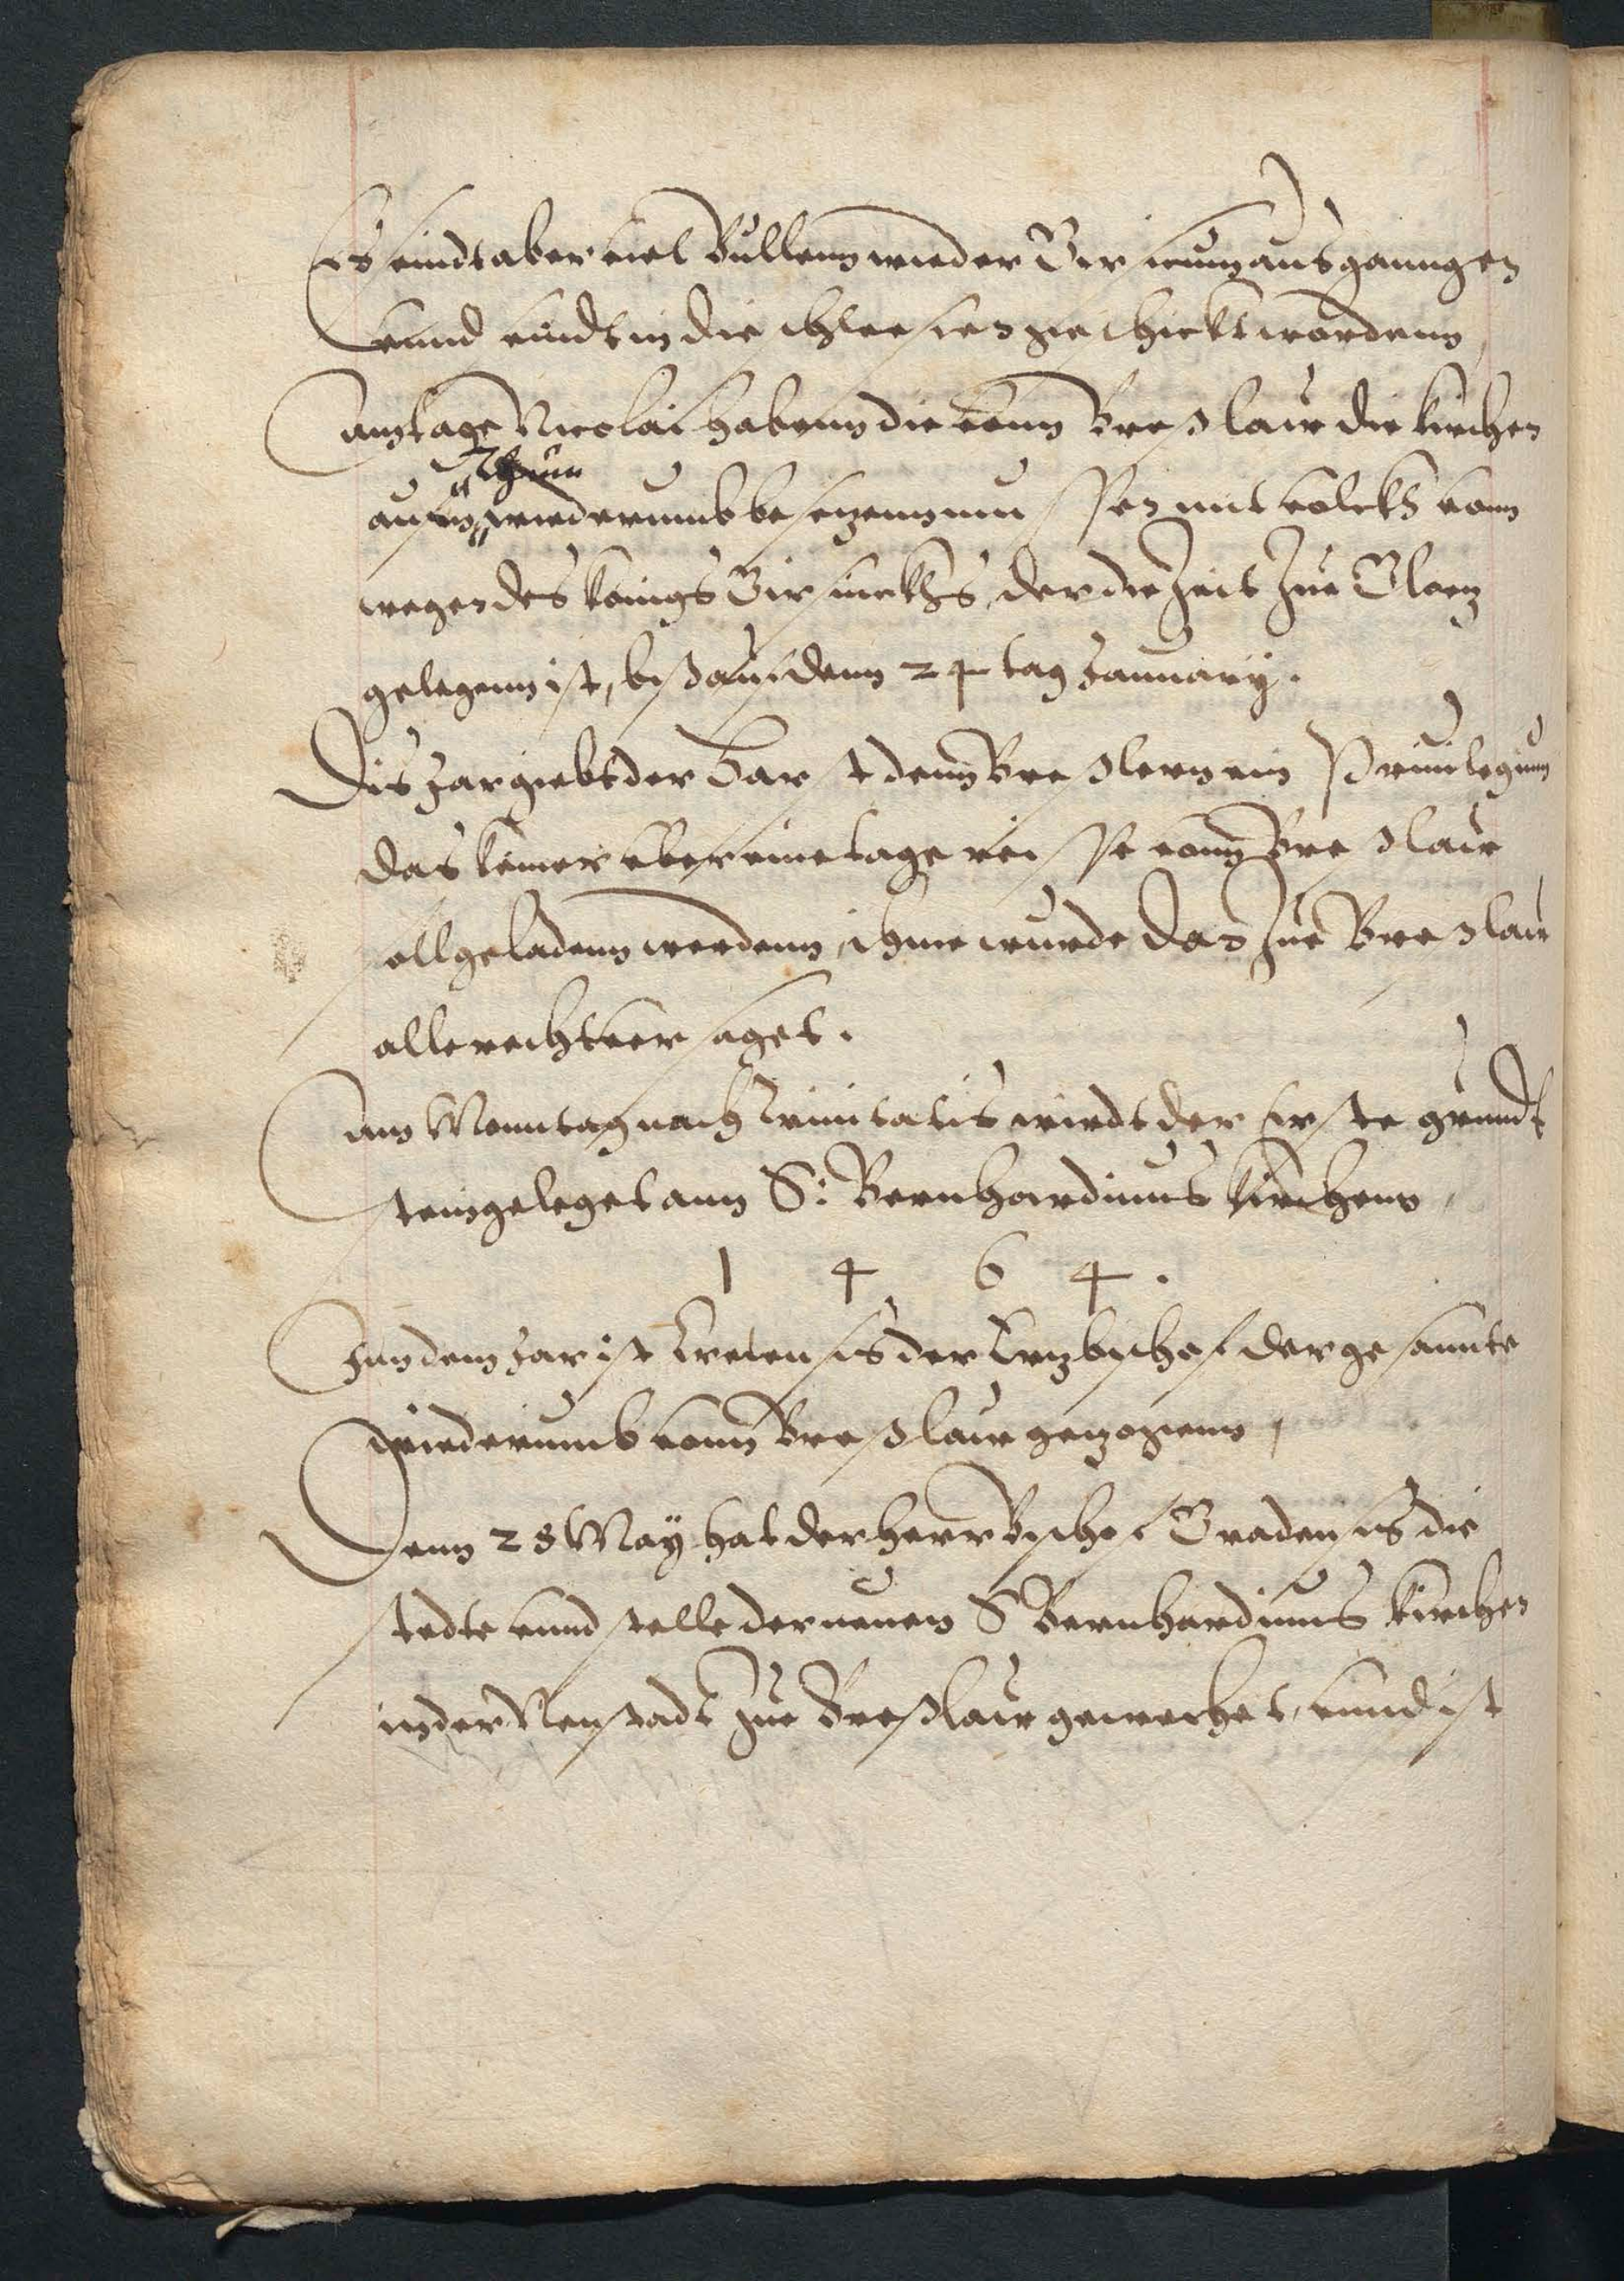 Es seindt aber viel Bullenn wieder Girsicum ausgaungen
vnnd seindt in die schleesien geschickt wordenn,
am tage Nicolai habenn die vonn Breßlaw die kirchen
aufm Thum wiederumb besezenn mussen mit volcks vonn
wegen des konigs Girsicks, der die Zeit Zue Gloez
gelegenn ist, biß auf denn 24 tag January.
Dis Jar giebt der Babst denn Breßlern ein Priuilegium
das keiner vber eine tage reisse vonn Breßlaw
soll geladenn werdenn, ihme wurde dan Zue Breslaw
alle recht versaget.
am Monntag nach Trinitatis wirdt der Erste grundt
stein geleget ann S: Bernhardinus Kirchenn,
1 4 6 4.
Inn dem Jar ist Cretensis der Erzbischof der gesannte
wiederumb vonn Breßlaw gezogenn,
Denn 28 May hat der Herr Bischof Gradensis die
stedte vnnd stelle der neuen S Bernhardinus Kirchen
in der Neustadt Zue Breßlaw geweihet, vnnd ist